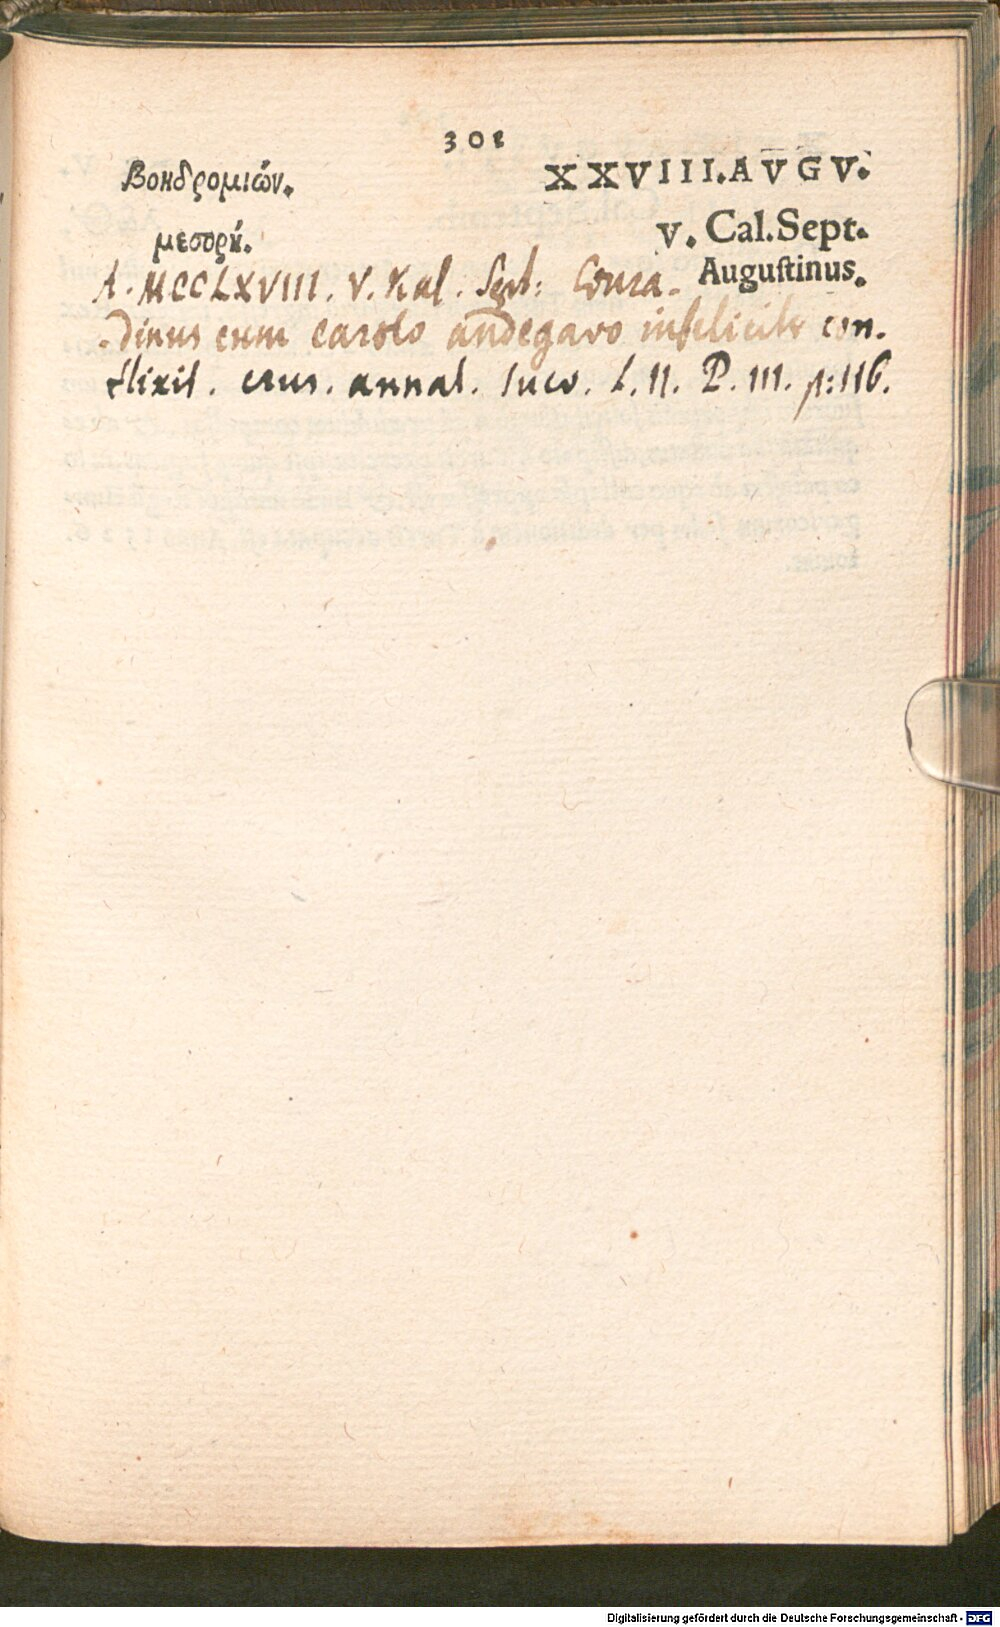 301
Βοηδρομιών.
XXVIII. AVGV.
μεσορή.
V. Cal. Sept.
Augustinus.
A. MCCLXVIII. V. Kal. Sept: Conra-
dinus cum carolo andegavo infeliciter con-
flixit. crus. annal. suev. L. II. P. III. p: 116.
Digitalisierung gefördert durch die Deutsche Forschungsgemeinschaft - DFG